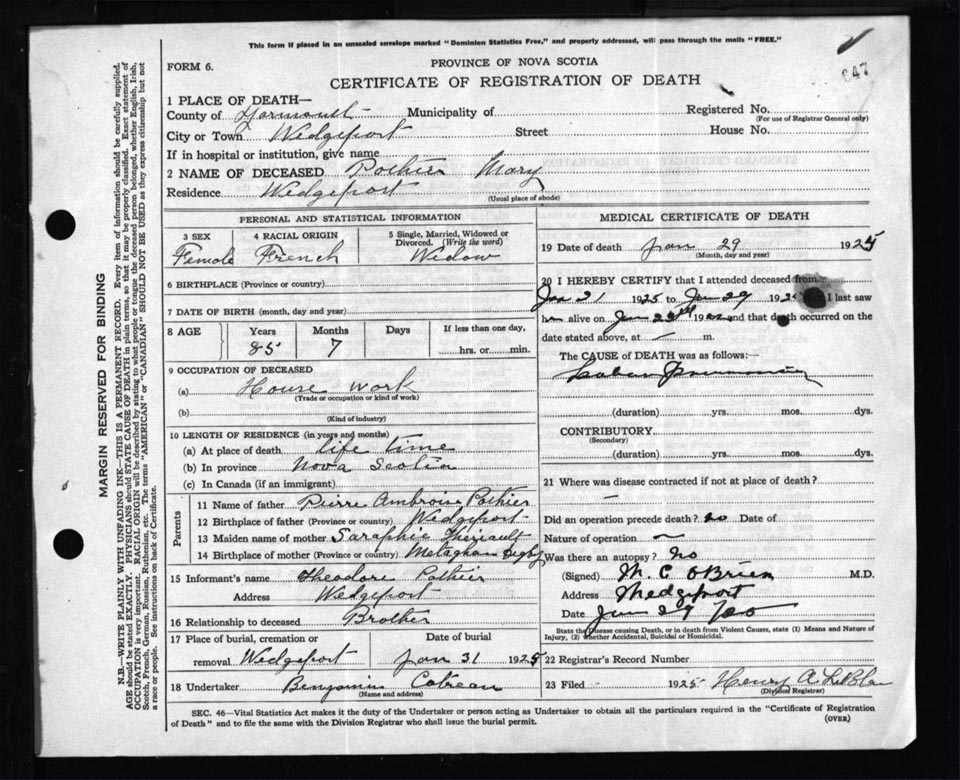 This form if placed in an unsealed envelope marked "Dominion Statistics Free," and properly addressed, will pass through the mails "FREE."
FORM 6.
PROVINCE OF NOVA SCOTIA
CERTIFICATE OF REGISTRATION OF DEATH
647
1 PLACE OF DEATH—
County of Yarmouth Municipality of Registered No.
(For use of Registrar General only)
City or Town Wedgeport Street House No.
If in hospital or institution, give name
2 NAME OF DECEASED Pothier Mary
Residence Wedgeport
(Usual place of abode)
MARGIN RESERVED FOR BINDING
N.B.—WRITE PLAINLY WITH UNFADING INK—THIS IS A PERMANENT RECORD. Every item of information should be carefully supplied.
AGE should be stated EXACTLY. PHYSICIANS should STATE CAUSE OF DEATH in plain terms, so that it may be properly classified. Exact statement of
OCCUPATION is very important. RACIAL ORIGIN will be described by stating to what people or tongue the deceased person belonged, whether English, Irish,
Scotch, French, German, Russian, Ruthenian, etc. The terms "AMERICAN" or "CANADIAN" SHOULD NOT BE USED as they express citizenship but not
a race or people. See instructions on back of Certificate.
PERSONAL AND STATISTICAL INFORMATION
3 SEX 4 RACIAL ORIGIN 5 Single, Married, Widowed or
Divorced. (Write the word)
Female French Widow
6 BIRTHPLACE (Province or country)
7 DATE OF BIRTH (month, day and year)
8 AGE Years Months Days If less than one day,
85 7 hrs. or min.
9 OCCUPATION OF DECEASED
(a) House work
(Trade or occupation or kind of work)
(b)
(Kind of industry)
10 LENGTH OF RESIDENCE (in years and months)
(a) At place of death life time
(b) In province Nova Scotia
(c) In Canada (if an immigrant)
Parents
11 Name of father Pierre Ambroise Pothier
12 Birthplace of father (Province or country) Wedgeport
13 Maiden name of mother Saraphie Theriault
14 Birthplace of mother (Province or country) Metaghan Digby
15 Informant's name Theodore Pothier
Address Wedgeport
16 Relationship to deceased Brother
17 Place of burial, cremation or Date of burial
removal Wedgeport Jan 31 1925
18 Undertaker Benjamin Cotreau
(Name and address)
MEDICAL CERTIFICATE OF DEATH
19 Date of death Jan 29 1925
(Month, day and year)
20 I HEREBY CERTIFY that I attended deceased from
Jan 21 1925 to Jan 29 192 I last saw
alive on Jan 19 and that death occurred on
date stated above, at m.
The CAUSE OF DEATH was as follows:—
Lobar Pneumonia
(duration) yrs. mos. dys.
CONTRIBUTORY
(Secondary)
(duration) yrs. mos. dys.
21 Where was disease contracted if not at place of death?
—
Did an operation precede death? no Date of
Nature of operation —
Was there an autopsy? No
(Signed) M. C. O'Brien M.D.
Address Wedgeport
Date Jan 29
State the Disease causing Death, or in death from Violent Causes, state (1) Means and Nature of
Injury, (2) whether Accidental, Suicidal or Homicidal.
22 Registrar's Record Number
23 Filed 1925 Henry A LeBlan
(Division Registrar)
SEC. 46—Vital Statistics Act makes it the duty of the Undertaker or person acting as Undertaker to obtain all the particulars required in the "Certificate of Registration
of Death" and to file the same with the Division Registrar who shall issue the burial permit.
(OVER)